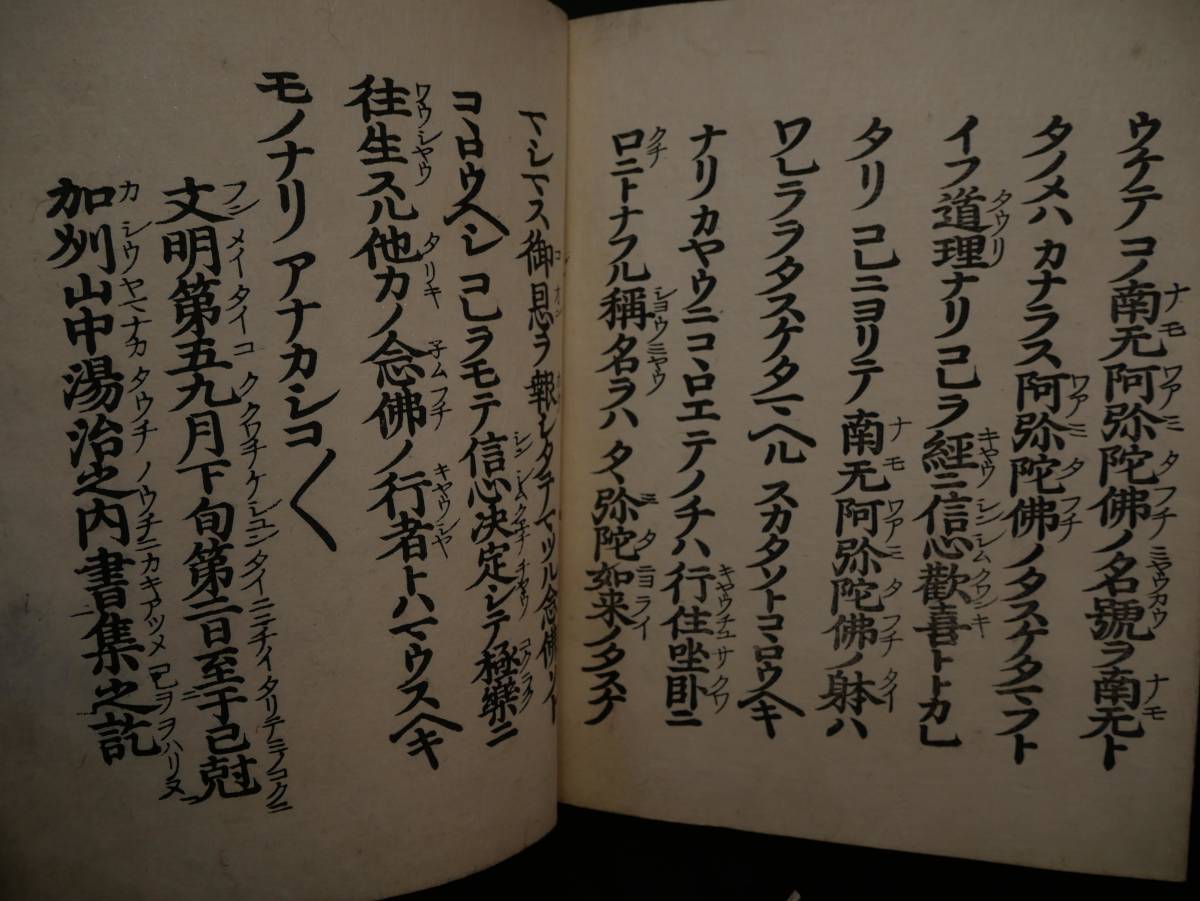 ウケテコノ南无阿弥陀佛ノ名號ヲ南无ト
タノメハカナラス阿弥陀佛ノタスケタマフト
イフ道理ナリコレヲ經ニ信心歡喜トトカレ
タリコレニヨリテ南无阿弥陀佛ノ躰ハ
ワレラヲタスケタマヘルスカタソトコヽロウヘキ
ナリカヤウニコヽロエテノチハ行住坐卧ニ
口ニトナフル稱名ヲハタヽ弥陀如来ノタスケ
マシマス御恩ヲ報シタテマツル念佛ソト
コヽロウヘシコレヲモテ信心决定シテ極樂ニ
往生スル他力ノ念佛ノ行者トハマウスヘキ
モノナリアナカシコ〱
文明第五九月下旬第二日至于巳尅
加刕山中湯治之内書集之訖